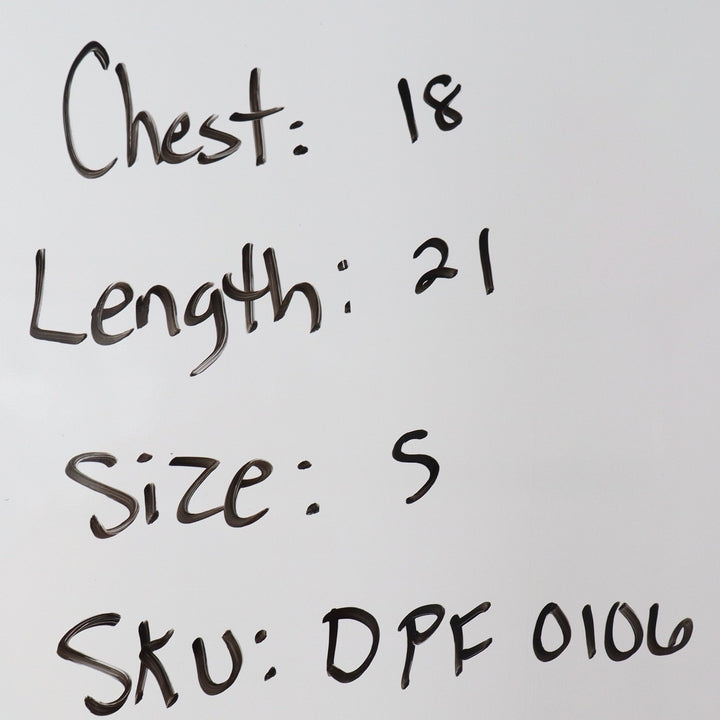 Chest: 18
Length: 21
Size: S
SKU: DPF 0106